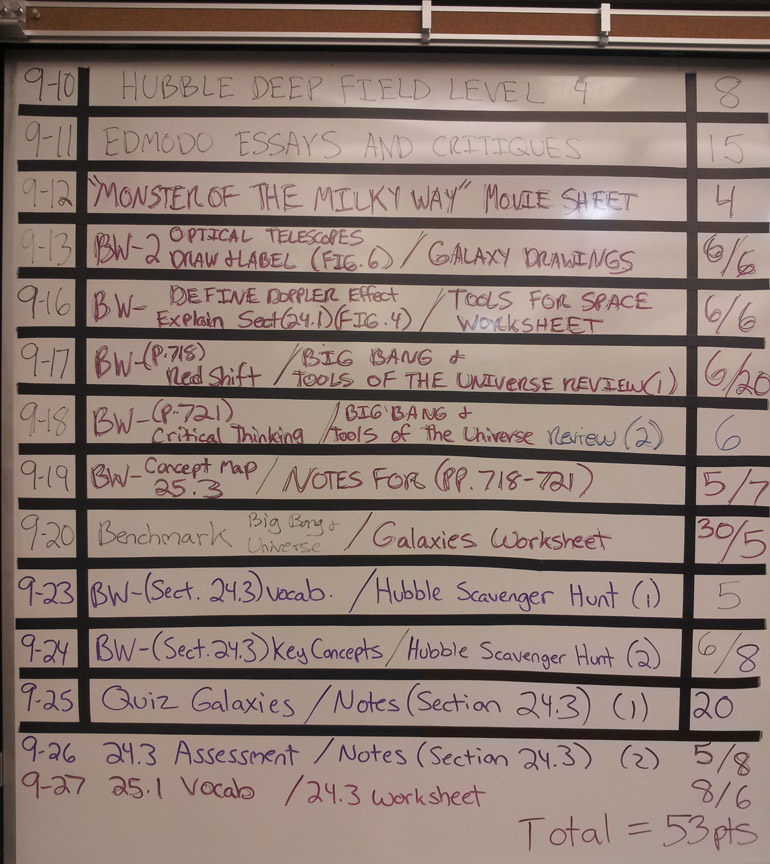 9-10 HUBBLE DEEP FIELD LEVEL 4 8
9-11 EDMODO ESSAYS AND CRITIQUES 15
9-12 "MONSTER OF THE MILKY WAY" MOVIE SHEET 4
9-13 BW-2 OPTICAL TELESCOPES
DRAW & LABEL (FIG. 6) / GALAXY DRAWINGS 6/6
9-16 BW- DEFINE DOPPLER Effect / TOOLS FOR SPACE
Explain Sect(24.1)(FIG. 4) WORKSHEET 6/6
9-17 BW-(P.718) / BIG BANG &
Red Shift TOOLS OF THE UNIVERSE REVIEW(1) 6/20
9-18 BW-(P.721) / BIG BANG &
Critical Thinking Tools of the Universe Review (2) 6
9-19 BW- Concept Map
25.3 / NOTES FOR (PP. 718-721) 5/7
9-20 Benchmark Big Bang &
Universe / Galaxies Worksheet 30/5
9-23 BW-(Sect. 24.3) vocab. / Hubble Scavenger Hunt (1) 5
9-24 BW-(Sect. 24.3) Key Concepts / Hubble Scavenger Hunt (2) 6/8
9-25 Quiz Galaxies / Notes (Section 24.3) (1) 20
9-26 24.3 Assessment / Notes (Section 24.3) (2) 5/8
9-27 25.1 Vocab / 24.3 worksheet 8/6
Total = 53pts